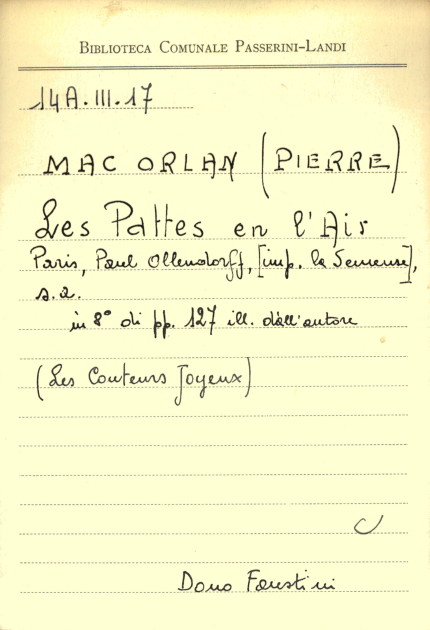 BIBLIOTECA COMUNALE PASSERINI-LANDI
14A.III.17
MAC ORLAN (PIERRE)
Les Pattes en l'Air
Paris, Paul Ollendorff, [imp. la Semeuse],
s.a.
in 8° di pp. 127 ill. dall'autore
(Les Conteurs Joyeux)
Dono Faustini